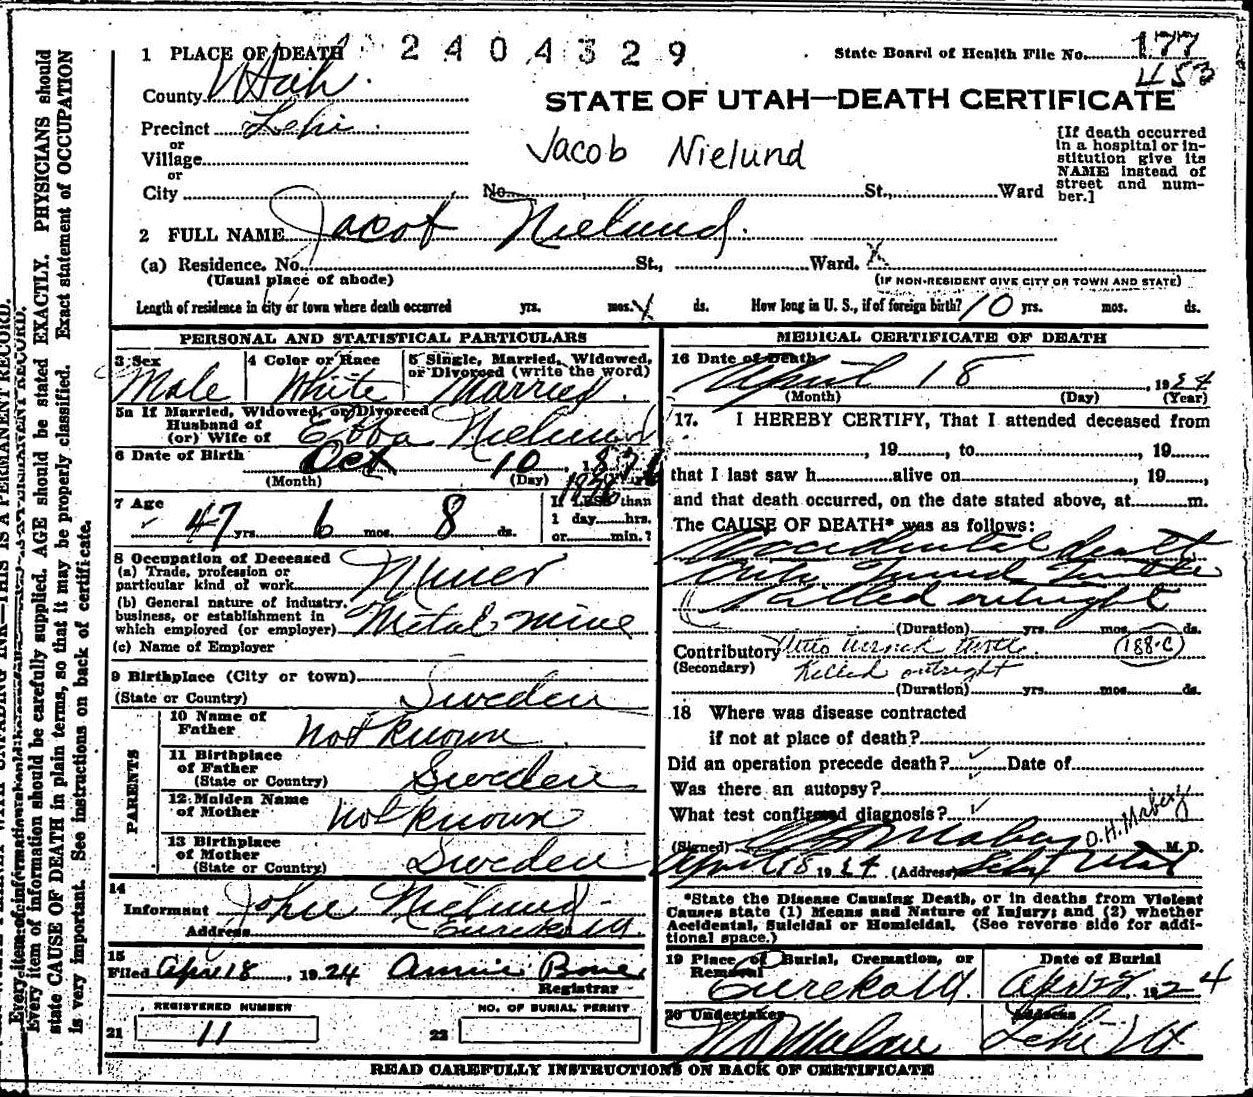 1 PLACE OF DEATH 2404329 State Board of Health File No. 177
453
County Utah.
STATE OF UTAH—DEATH CERTIFICATE
Precinct Lehi
or
Village
or
City No. St., Ward
Jacob Nielund
[If death occurred
in a hospital or in-
stitution give its
NAME instead of
street and num-
ber.]
2 FULL NAME Jacob Nielund.
(a) Residence. No. St., Ward. X
(Usual place of abode) (IF NON-RESIDENT GIVE CITY OR TOWN AND STATE)
Length of residence in city or town where death occurred yrs. mos. ds. How long in U. S., if of foreign birth? 10 yrs. mos. ds.
PERSONAL AND STATISTICAL PARTICULARS
3 Sex 4 Color or Race 5 Single, Married, Widowed,
or Divorced (write the word)
Male White Married.
5a If Married, Widowed, or Divorced
Husband of
(or) Wife of Ebba Nielund
6 Date of Birth Oct 10, 1876
(Month) (Day)
1876
7 Age 47 yrs. 6 mos. 8 ds.
If LESS than
1 day hrs.
or min.?
8 Occupation of Deceased
(a) Trade, profession or
particular kind of work Miner
(b) General nature of industry,
business, or establishment in
which employed (or employer) Metal mine
(c) Name of Employer
9 Birthplace (City or town)
(State or Country) Sweden
PARENTS
10 Name of
Father not known.
11 Birthplace
of Father
(State or Country) Sweden
12 Maiden Name
of Mother not known
13 Birthplace
of Mother
(State or Country) Sweden
14
Informant John Nielund
Address Eureka Ut.
15
Filed Apr 18, 1924 Annie Bone
Registrar
REGISTERED NUMBER NO. OF BURIAL PERMIT
21 11 22
MEDICAL CERTIFICATE OF DEATH
16 Date of Death
April 18, 1924
(Month) (Day) (Year)
17. I HEREBY CERTIFY, That I attended deceased from
, 19 , to , 19
that I last saw h alive on , 19 ,
and that death occurred, on the date stated above, at m.
The CAUSE OF DEATH* was as follows:
Accidental death
Auto turned turtle
(Killed outright
(Duration) yrs. mos. ds.
Contributory Auto turned turtle 188-C
(Secondary) Killed outright
(Duration) yrs. mos. ds.
18 Where was disease contracted
if not at place of death?
Did an operation precede death? Date of
Was there an autopsy?
What test confirmed diagnosis?
O.H. Mabery
(Signed) Mabery M. D.
April 18 1924 (Address) Lehi Utah
*State the Disease Causing Death, or in deaths from Violent
Causes state (1) Means and Nature of Injury; and (2) whether
Accidental, Suicidal or Homicidal. (See reverse side for addi-
tional space.)
19 Place of Burial, Cremation, or
Removal Date of Burial
Eureka Ut. Apr 22 1924
20 Undertaker Address
Lehi Ut
READ CAREFULLY INSTRUCTIONS ON BACK OF CERTIFICATE
Every item of information should be carefully supplied. AGE should be stated EXACTLY. PHYSICIANS should
state CAUSE OF DEATH in plain terms, so that it may be properly classified. Exact statement of OCCUPATION
is very important. See instructions on back of certificate.